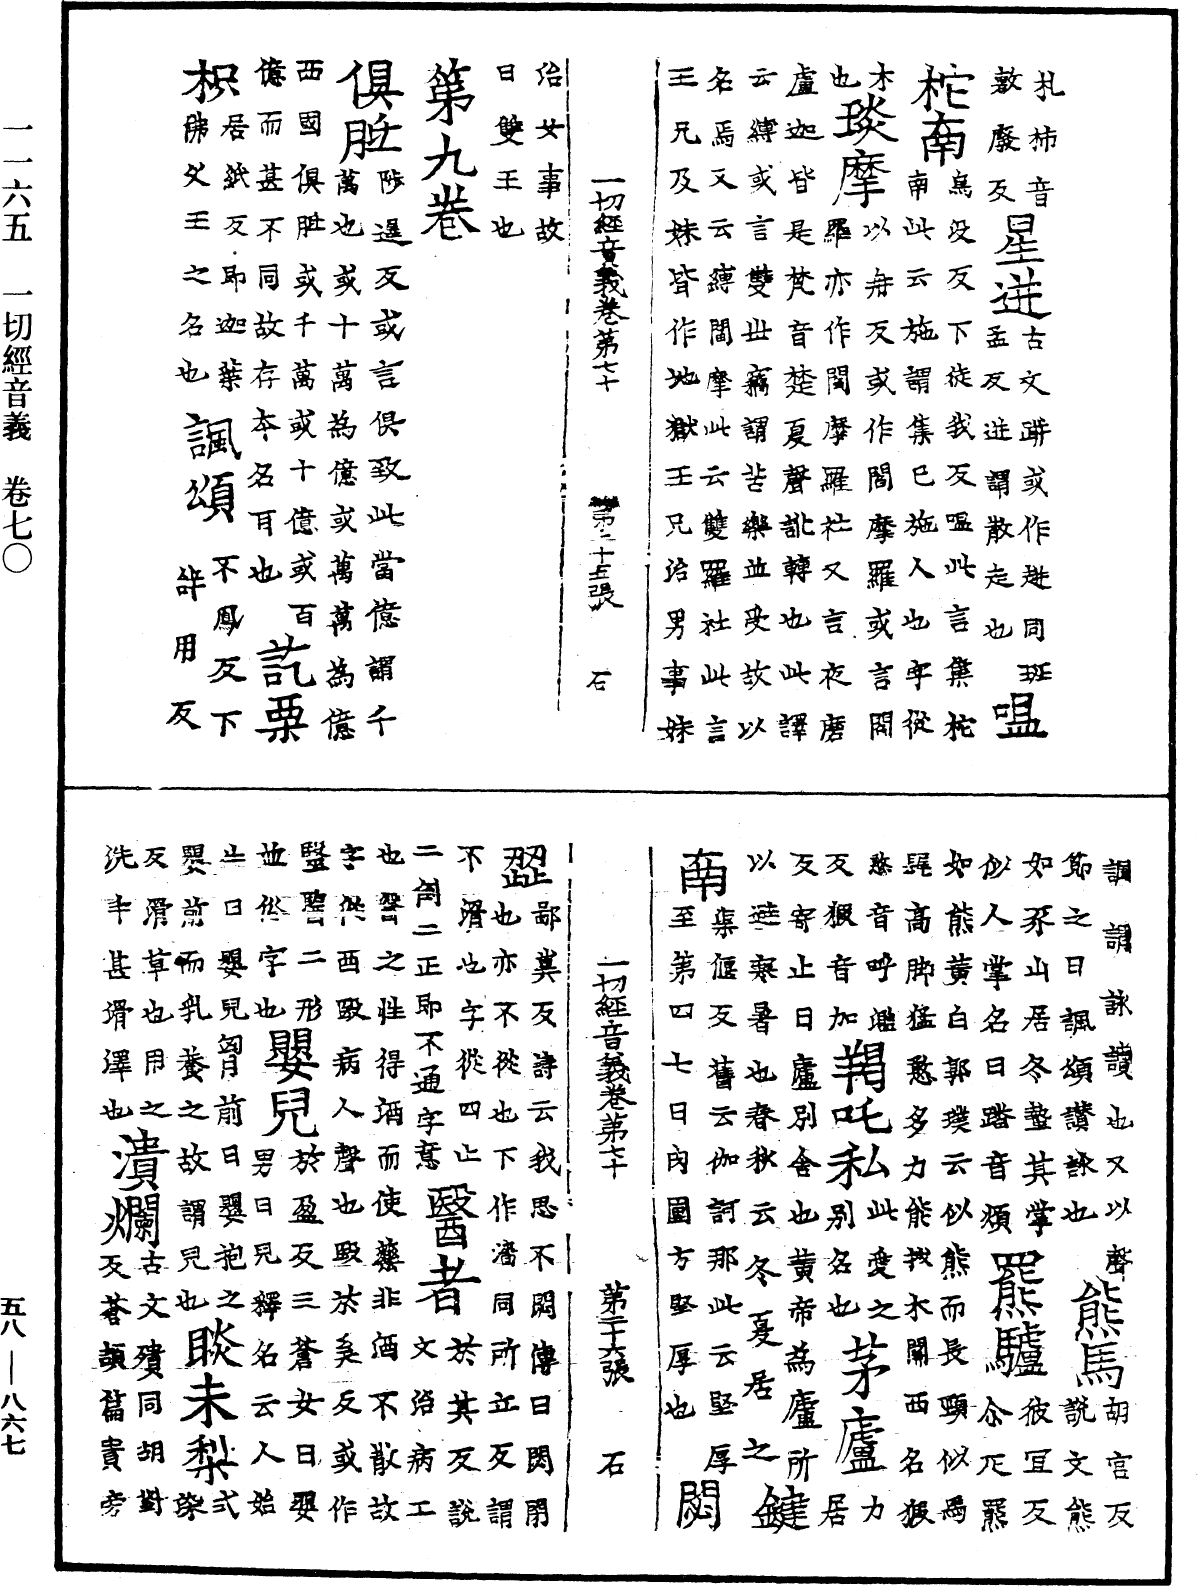 札柿音
敷廢反
星迸
古文跰或作趀同班
孟反迸謂散走也
嗢
柁南
烏沒反下徒我反嗢此言集柁
南此云施謂集已施人也字從
木
也
琰摩
以冉反或作閻摩羅或言閻
羅亦作閻摩羅社又言夜磨
盧迦皆是梵音楚夏聲訛轉也此譯
云縛或言雙世竊謂苦樂並受故以
名焉又云縛閻摩此云雙羅社此言
王兄及妹皆作地獄王兄治男事妹
一切經音義卷第七十 第二十五張 石
治女事故
曰雙王也
第九卷
俱胝
陟遲反或言俱致此當億謂千
萬也或十萬為億或萬萬為億
西國俱胝或千萬或十億或百
億而甚不同故存本名耳也
訖栗
枳
居紙反即迦葉
佛父王之名也
諷頌
不鳳反下
許用反
謂詠讀也又以聲
節之曰諷頌讚詠也
熊馬
胡官反
說文熊
如豕山居冬蟄其掌
似人掌名曰蹯音煩
羆驢
彼宜反
尒疋羆
如熊黃白郭璞云似熊而長頸似馬
高脚猛憨多力能拔木關西名猳
憨音呼濫
反猳音加
羯吒私
此愛之
別名也
茅廬
力
居
反寄止曰廬別舍也黃帝為廬所
以避寒暑也春秋云冬夏居之
鍵
南
渠偃反舊云伽訶那此云堅厚
至第四七日內團方堅厚也
閟
一切經音義卷第七十 第二十六張 石
澀
鄙冀反詩云我思不閟傳曰閟閉
也亦不從也下作濇同所立反謂
不滑也字從四止
二倒二正即不通字意
醫者
於其反說
文治病工
也醫之性得酒而使藥非酒不散故
字從酉殹病人聲也殹於奚反或作
毉醫二形
並俗字也
嬰兒
於盈反三蒼女曰嬰
男曰兒釋名云人始
生曰嬰兒胷前曰嬰抱之
嬰前而乳養之故謂兒也
睒末梨
式
染
反滑草也用之
洗手甚滑澤也
潰爛
古文殨同胡對
反蒼頡篇實旁
一一六五 一切經音義 卷七〇
五八—八六七